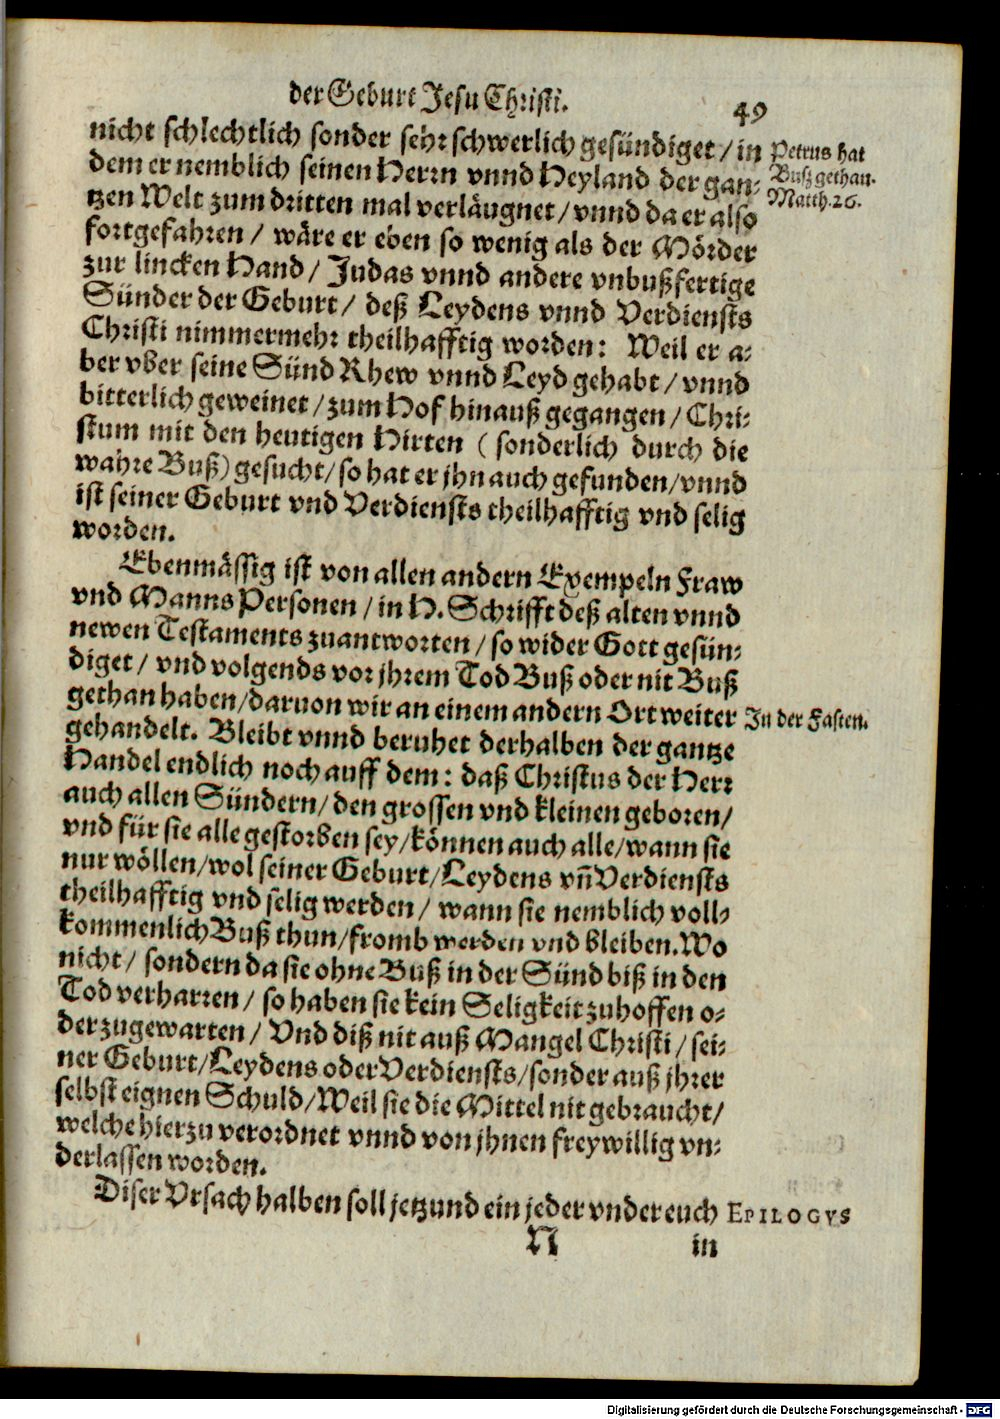 der Geburt Jesu Christi.
49
nicht schlechtlich sonder sehr schwerlich gesündiget / in
dem er nemblich seinen Herrn vnnd Heyland der gan-
tzen Welt zum dritten mal verläugnet / vnnd da er also
fortgefahren / wäre er eben so wenig als der Mörder
zur lincken Hand / Judas vnnd andere vnbußfertige
Sünder der Geburt / deß Leydens vnnd Verdiensts
Christi nimmermehr theilhafftig worden: Weil er a-
ber vber seine Sünd Rhew vnnd Leyd gehabt / vnnd
bitterlich geweinet / zum Hof hinauß gegangen / Chri-
stum mit den heutigen Hirten ( sonderlich durch die
wahre Buß) gesucht / so hat er jhn auch gefunden / vnnd
ist seiner Geburt vnd Verdiensts theilhafftig vnd selig
worden.
Petrus hat
Buß gethan.
Matth. 26.
Ebenmässig ist von allen andern Exempeln Fraw
vnd Manns Personen / in H. Schrifft deß alten vnnd
newen Testaments zuantworten / so wider Gott gesün-
diget / vnd volgends vor jhrem Tod Buß oder nit Buß
gethan haben / daruon wir an einem andern Ort weiter
gehandelt. Bleibt vnnd beruhet derhalben der gantze
Handel endlich noch auff dem: daß Christus der Herr
auch allen Sündern / den grossen vnd kleinen geboren /
vnd für sie alle gestorben sey / können auch alle / wann sie
nur wöllen / wol seiner Geburt / Leydens vñ Verdiensts
theilhafftig vnd selig werden / wann sie nemblich voll-
kommenlich Buß thun / fromb werden vnd bleiben. Wo
nicht / sondern da sie ohne Buß in der Sünd biß in den
Tod verharren / so haben sie kein Seligkeit zuhoffen o-
der zugewarten / Vnd diß nit auß Mangel Christi / sei-
ner Geburt / Leydens oder Verdiensts / sonder auß jhrer
selbst eignen Schuld / Weil sie die Mittel nit gebraucht /
welche hierzu verordnet vnnd von jhnen freywillig vn-
derlassen worden.
In der Fasten.
Diser Vrsach halben soll jetzund ein jeder vnder euch
EPILOGVS
N
in
Digitalisierung gefördert durch die Deutsche Forschungsgemeinschaft - DFG